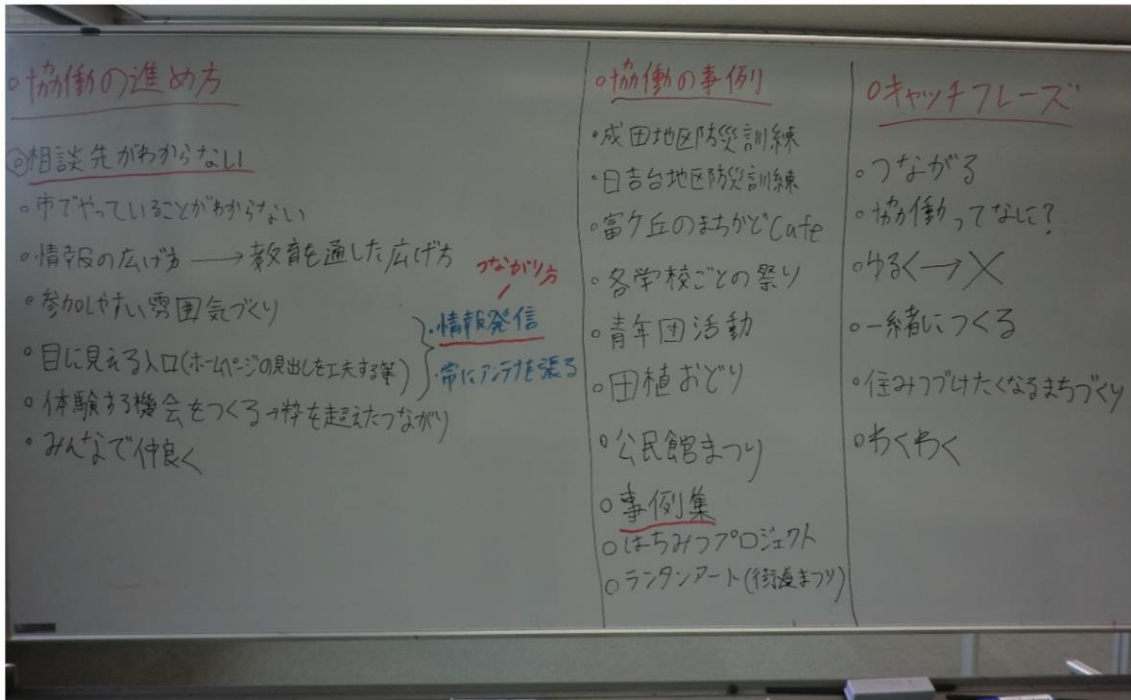 ○協働の進め方
◎相談先がわからない
○市でやっていることがわからない
○情報の広げ方→教育を通した広げ方
○参加しやすい雰囲気づくり
○目に見える入口(ホームページの見出しを工夫する等)
○体験する機会をつくる→枠を超えたつながり
○みんなで仲良く
つながり方
・情報発信
・常にアンテナを張る
○協働の事例
・成田地区防災訓練
・日吉台地区防災訓練
○富ケ丘のまちかどCafe
○各学校ごとの祭り
○青年団活動
○田植おどり
○公民館まつり
○事例集
○はちみつプロジェクト
○ランタンアート(街道まつり)
○キャッチフレーズ
○つながる
○協働ってなに?
○ゆるく→×
○一緒につくる
○住みつづけたくなるまちづくり
○わくわく